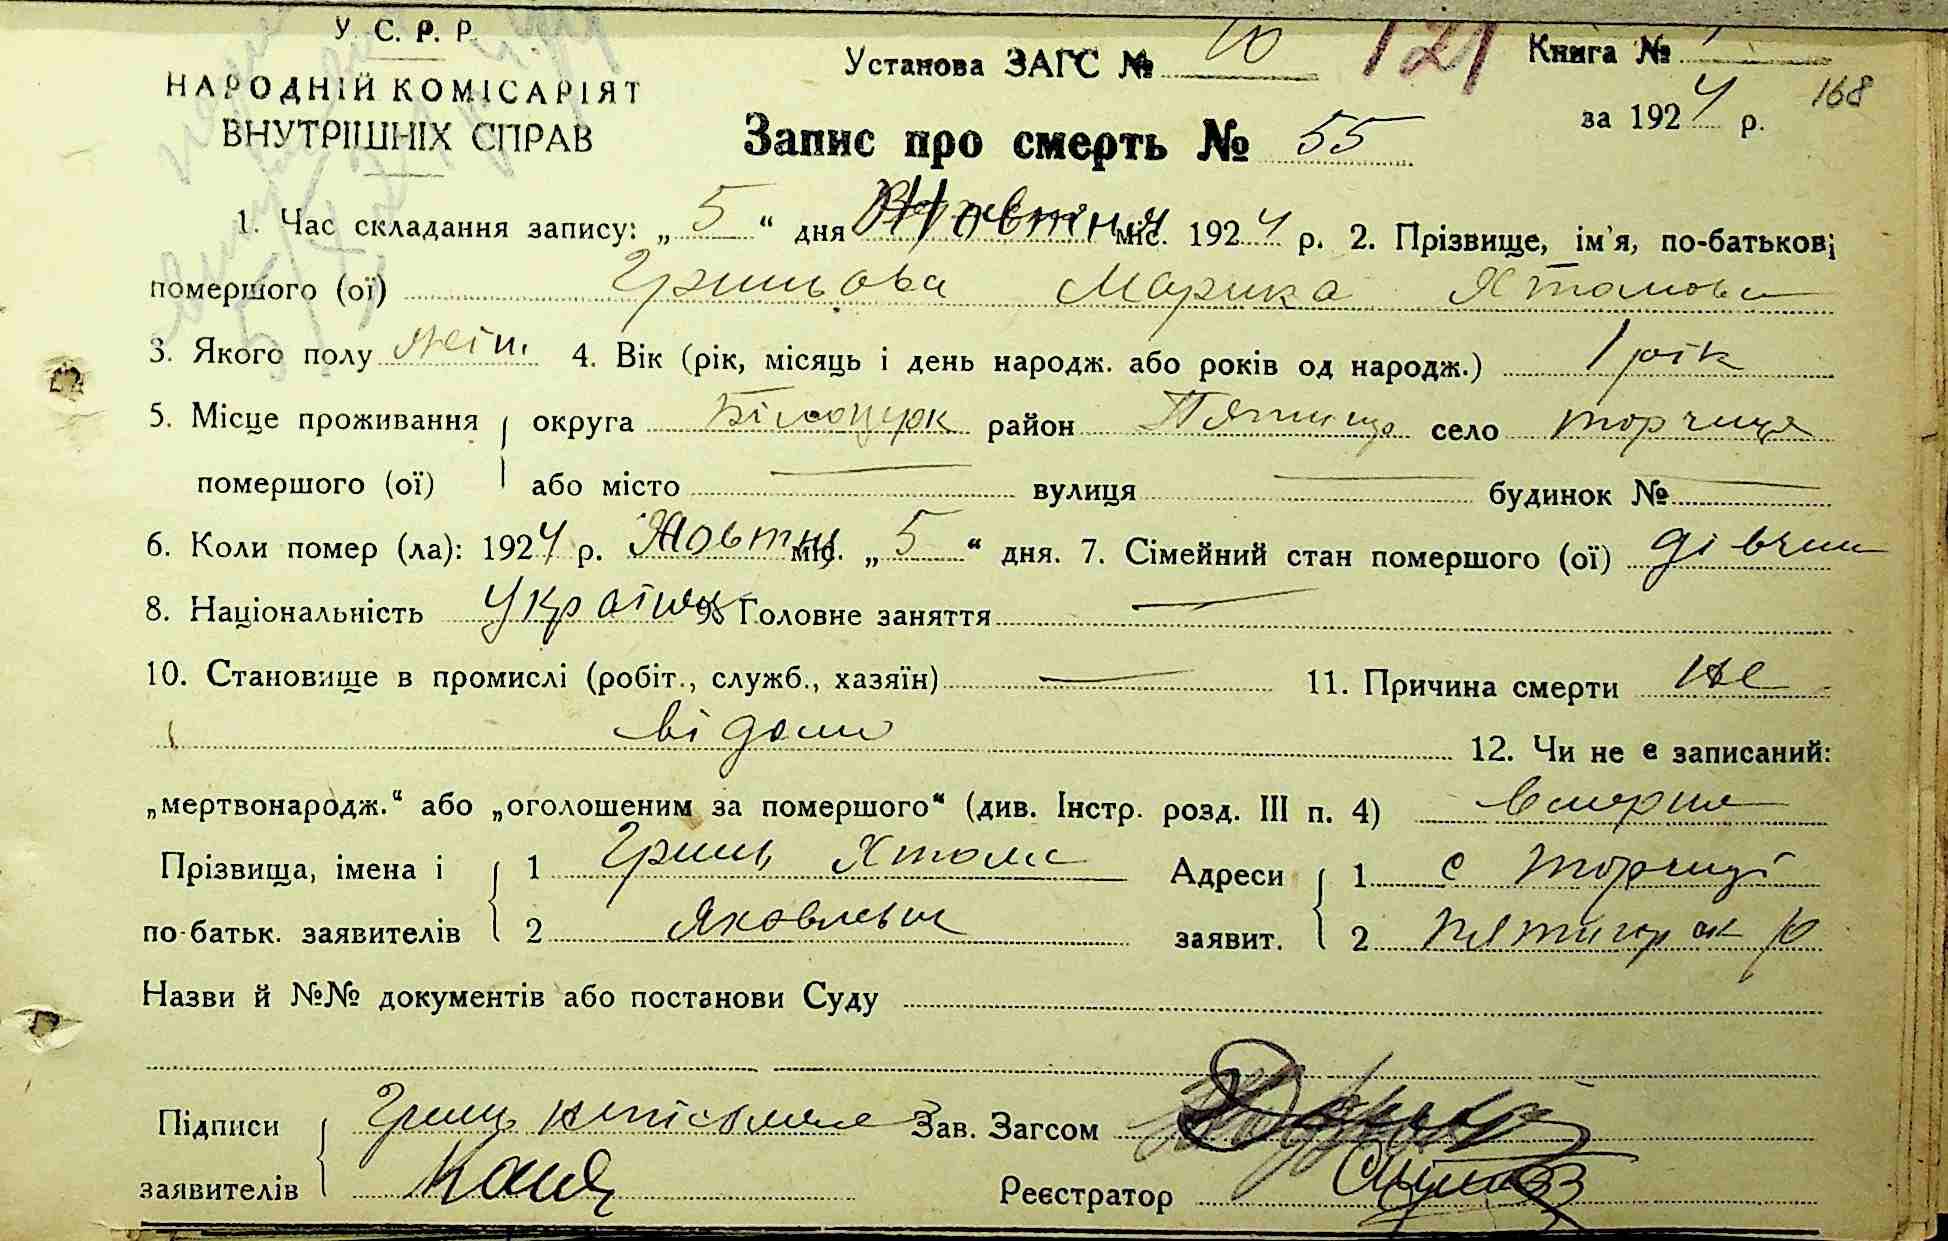 У. С. Р. Р.
НАРОДНІЙ КОМІСАРІЯТ
ВНУТРІШНІХ СПРАВ
Установа ЗАГС № 10 121 Книга №
за 1924 р. 168
Запис про смерть № 55
1. Час складання запису: „ 5 “ дня Жовтня міс. 1924 р. 2. Прізвище, ім'я, по-батькові
помершого (ої) Гриньова Марика
3. Якого полу жін. 4. Вік (рік, місяць і день народж. або років од народж.) 1 рік
5. Місце проживання округа Білоцерк район село торчиця
помершого (ої) або місто — вулиця — будинок № —
6. Коли помер (ла): 1924 р. Жовтня міс. „ 5 “ дня. 7. Сімейний стан помершого (ої) дівчин
8. Національність Україн 9. Головне заняття —
10. Становище в промислі (робіт., служб., хазяїн) — 11. Причина смерти не
відома
12. Чи не є записаний:
„мертвонародж.“ або „оголошеним за помершого“ (див. Інстр. розд. III п. 4) вмерша
Прізвища, імена і 1 Гринь Адреси 1 с Торчиці
по-батьк. заявителів 2 Яковлевич заявит. 2 Пятигорск р
Назви й №№ документів або постанови Суду
Підписи Гринь неписьмене Зав. Загсом
заявителів Реєстратор